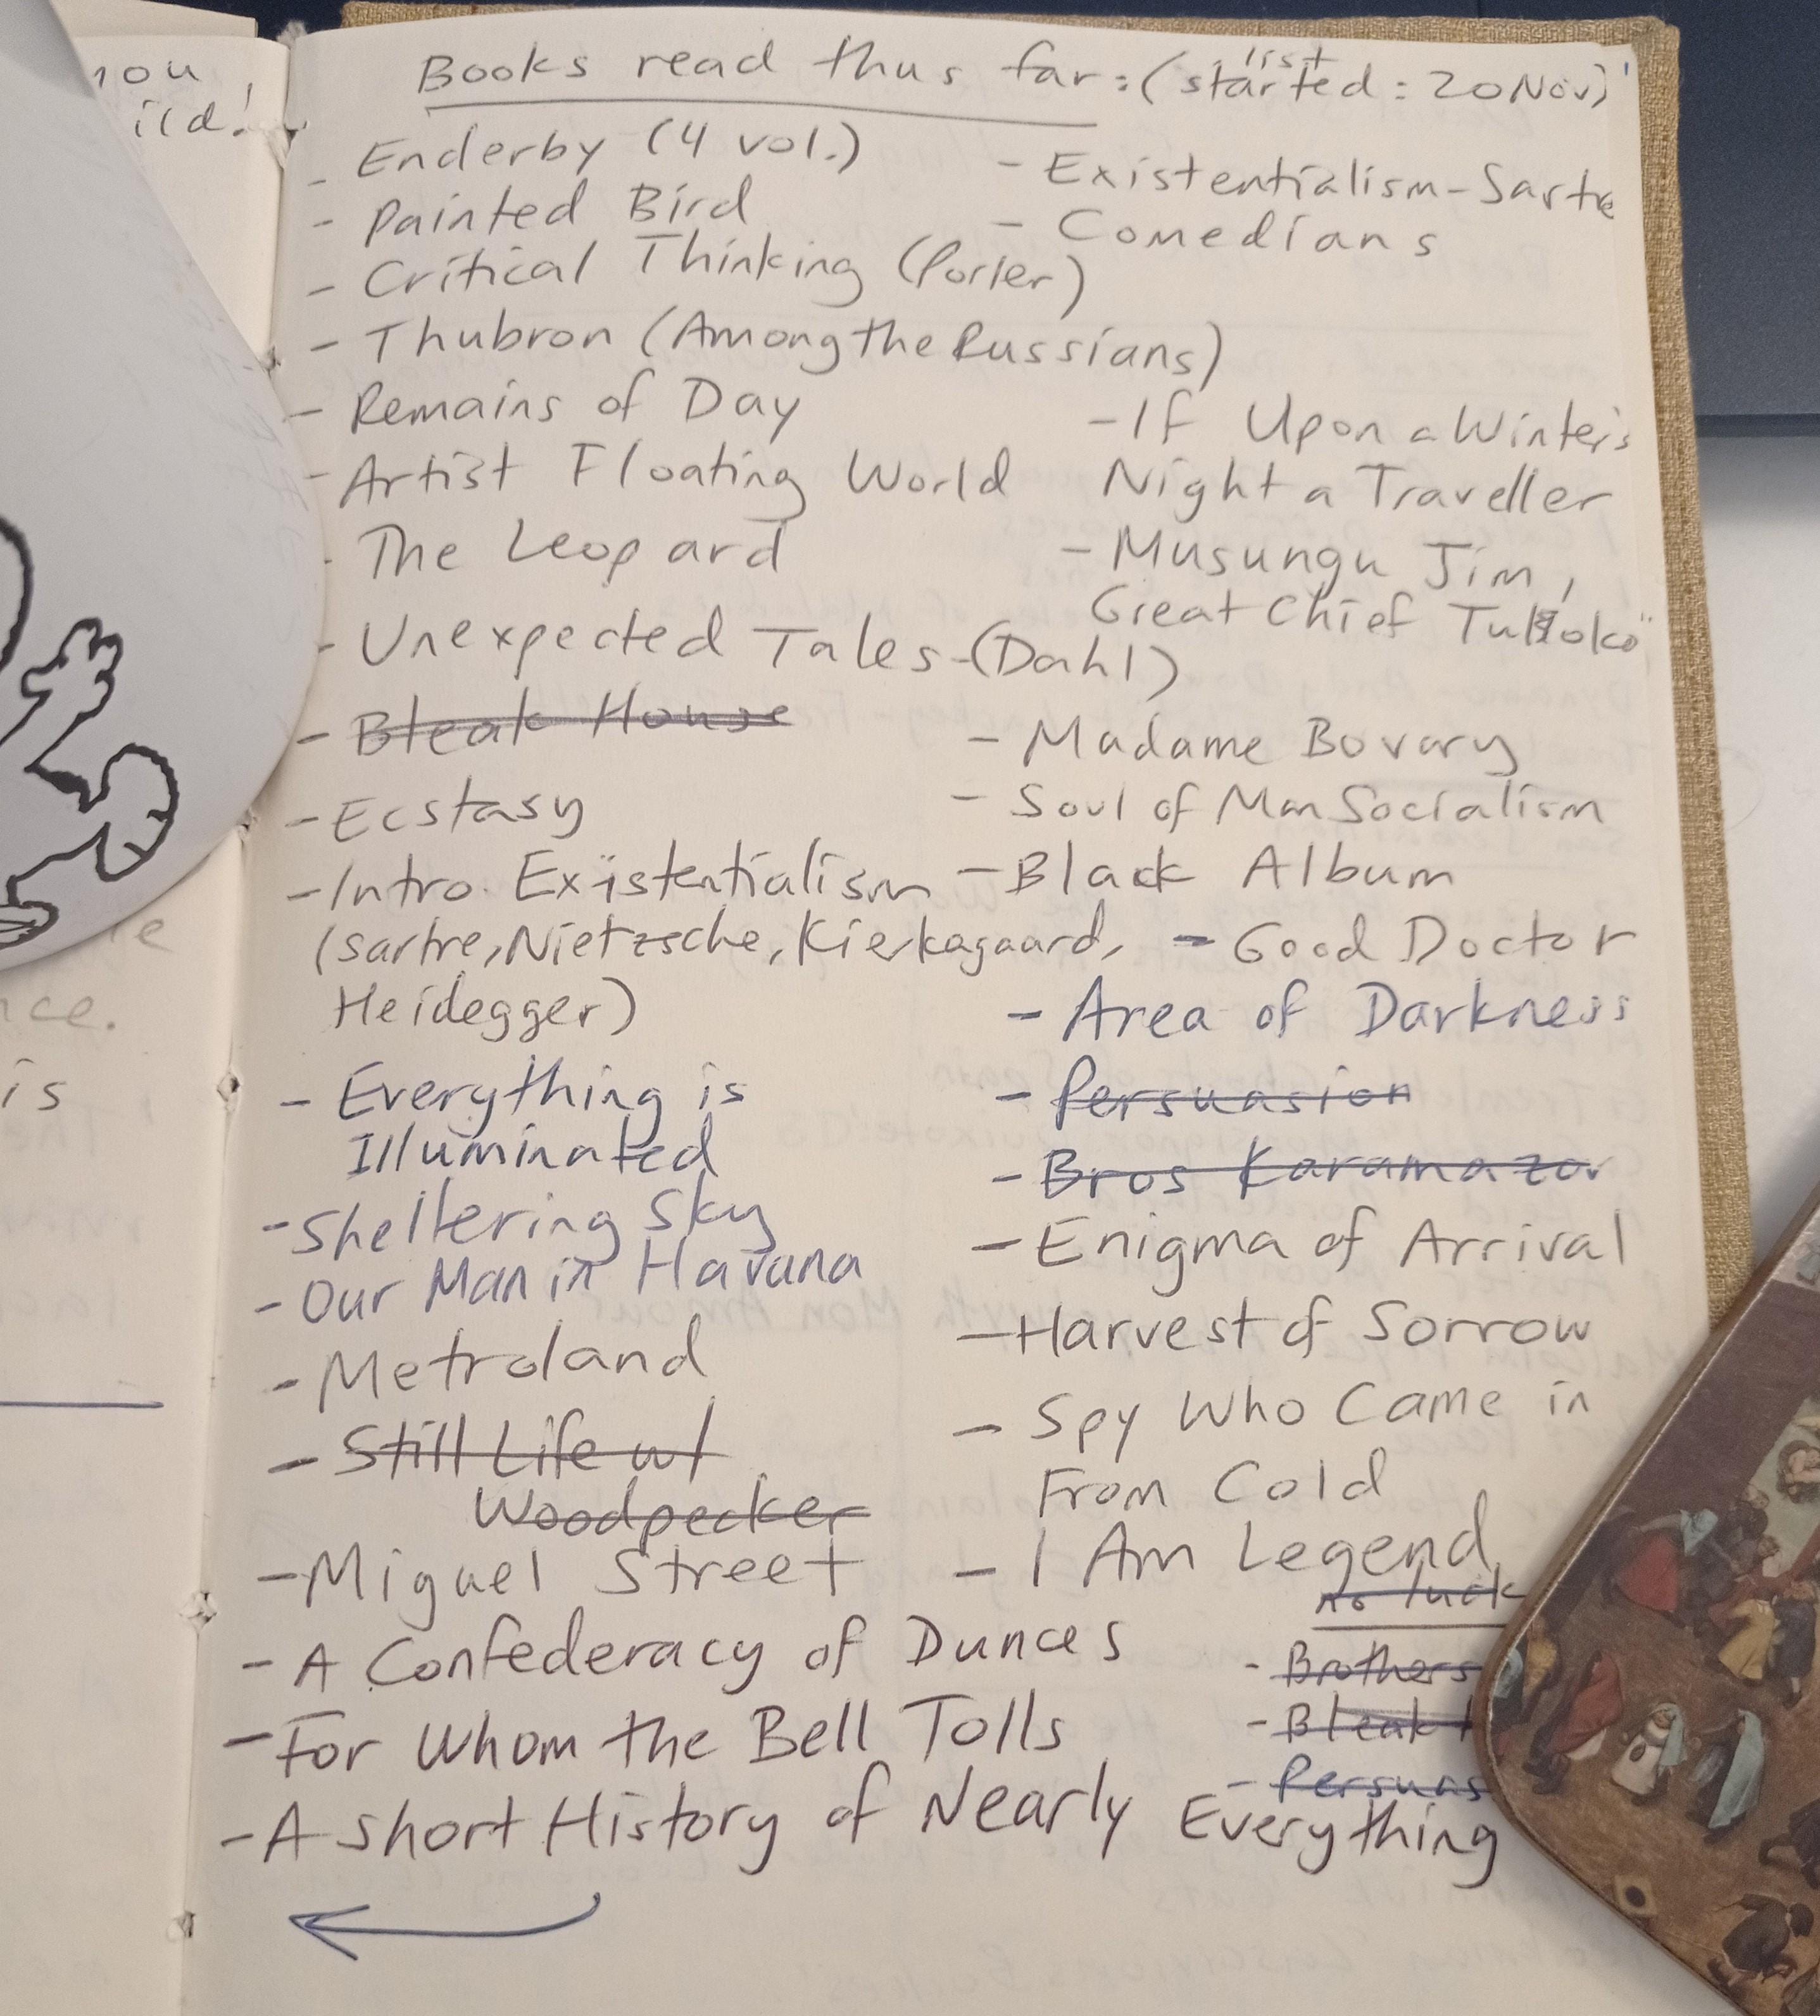 Books read thus far: (list started: 20 Nov)
- Enderby (4 vol.)
- Painted Bird
- Critical Thinking (Porter)
- Thubron (Among the Russians)
- Remains of Day
- Artist Floating World
- The Leopard
- Unexpected Tales - (Dahl)
- Bleak House
- Ecstasy
- Intro. Existentialism
(Sartre, Nietzsche, Kierkagaard,
Heidegger)
- Everything is
Illuminated
- Sheltering Sky
- Our Man in Havana
- Metroland
- Still Life w/
Woodpecker
- Miguel Street
- A Confederacy of Dunces
- For Whom the Bell Tolls
- A Short History of Nearly Everything
- Existentialism - Sartre
- Comedians
- If Upon a Winter's
Night a Traveller
- Musungu Jim,
Great Chief
- Madame Bovary
- Soul of Man Socialism
- Black Album
- Good Doctor
- Area of Darkness
- Persuasion
- Bros Karamazov
- Enigma of Arrival
- Harvest of Sorrow
- Spy Who Came in
From Cold
- I Am Legend
no luck
- Brothers
- Bleak
- Persuas
is